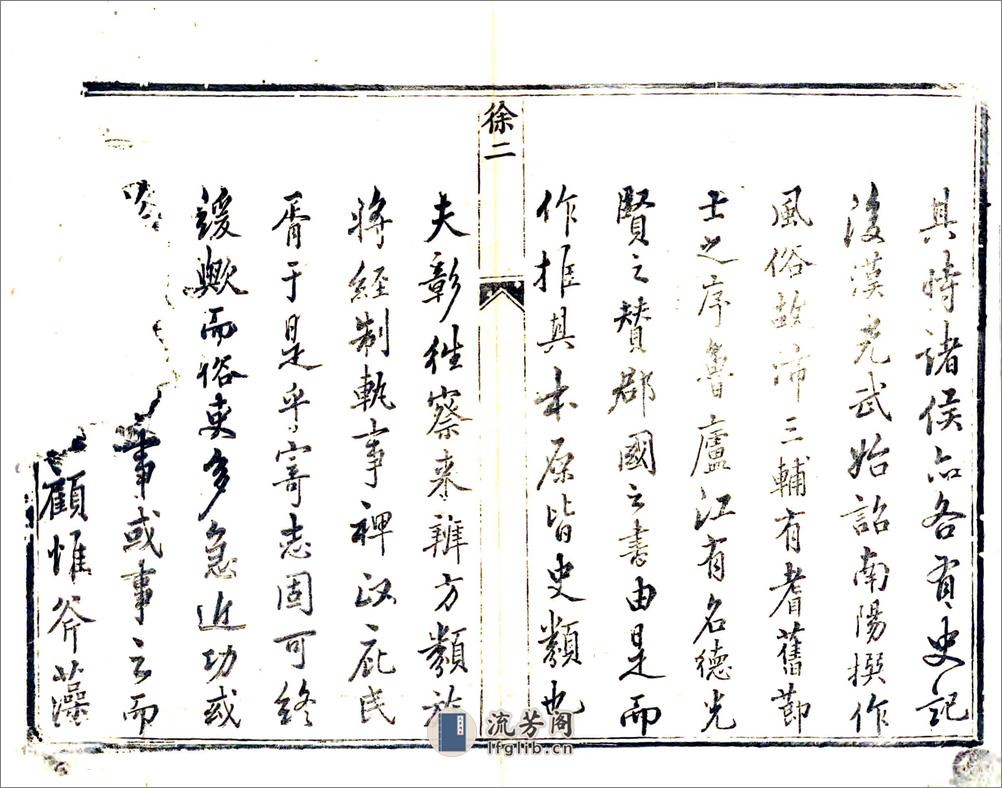 其時諸侯亦各有史記
後漢光武始詔南陽撰作
風俗故沛三輔有耆舊節
士之序魯廬江有名德先
賢之贊郡國之書由是而
作推其本原皆史類也
徐二
夫彰往察來辨方類
將經制軌事裨政庇民
胥于是乎寄志固可終
緩歟而俗吏多急近功或
事或事之而
顧惟斧藻
流芳阁
lfglib.cn